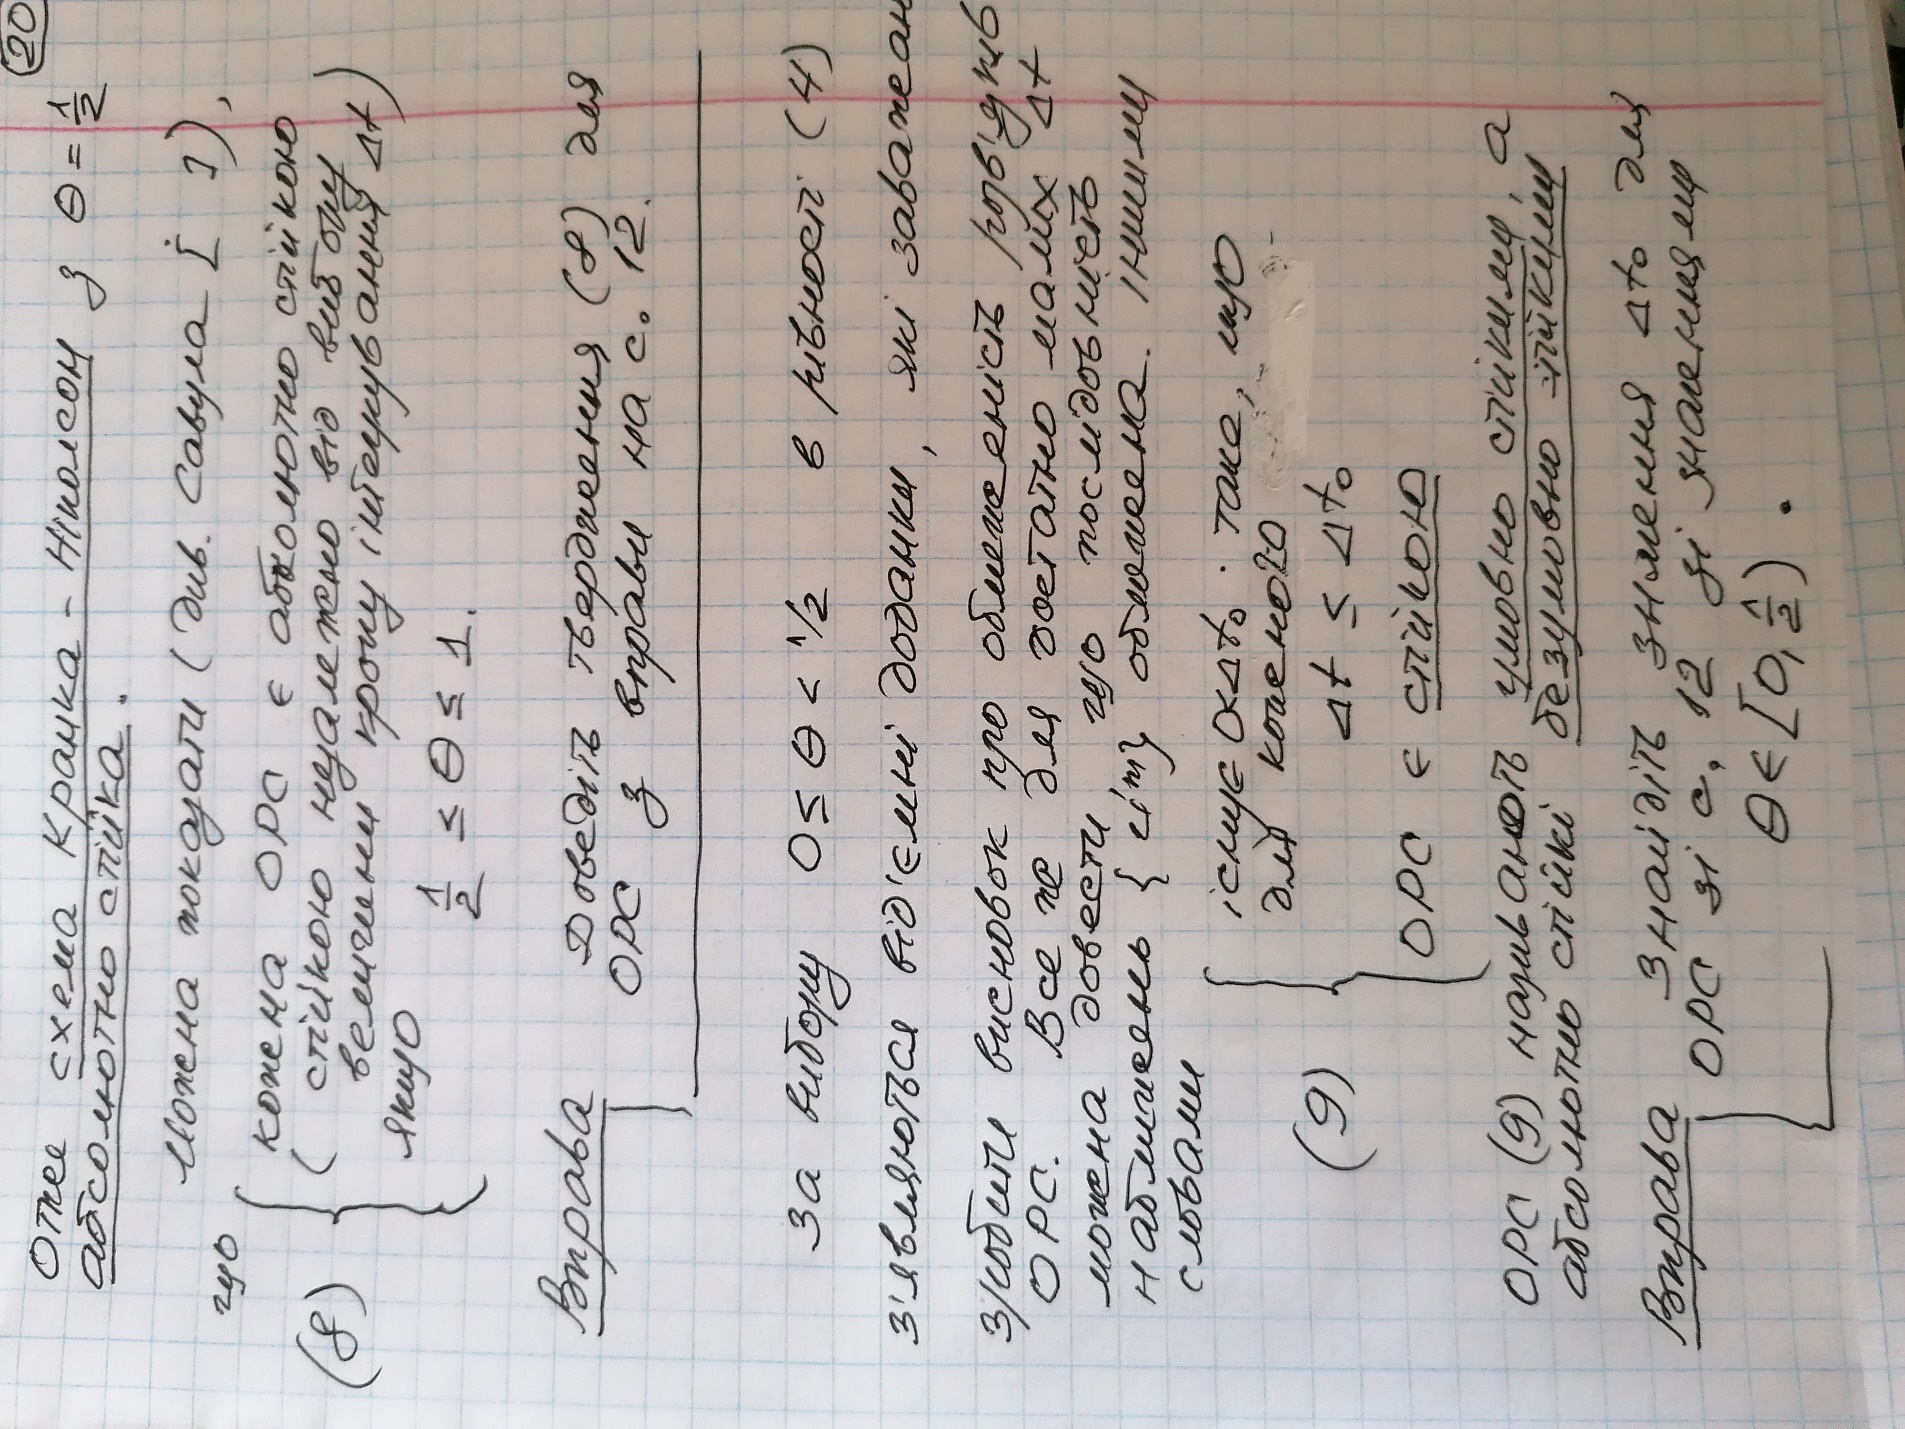 20
Отже схема Кранка - Ніколсон з θ = 1/2
абсолютно стійка.
Можна показати (див. Савула [ ]),
що
(8) { кожна ОРС є абсолютно стійкою
( стійкою незалежно від вибору
величини кроку інтегрування Δt)
якщо
1/2 ≤ θ ≤ 1.
Вправа Доведіть твердження (8) для
ОРС з вправи на с. 12.
За вибору 0 ≤ θ < 1/2 в рівності (4)
з'являються від'ємні доданки, які заважають
зробити висновок про обмеженість розв'язків
ОРС. Все же для достатньо малих Δt
можна довести що послідовність
наближень { } обмежена. Іншими
словами
(9) { існує 0<Δt₀ : таке, що
для кожного
Δt ≤ Δt₀
ОРС є стійкою
ОРС (9) називають умовно стійкими, а
абсолютно стійкі безумовно стійкими
Вправа Знайдіть значення Δt₀ для
ОРС зі с. 12 зі значеннями
θ ∈ [0, 1/2) .